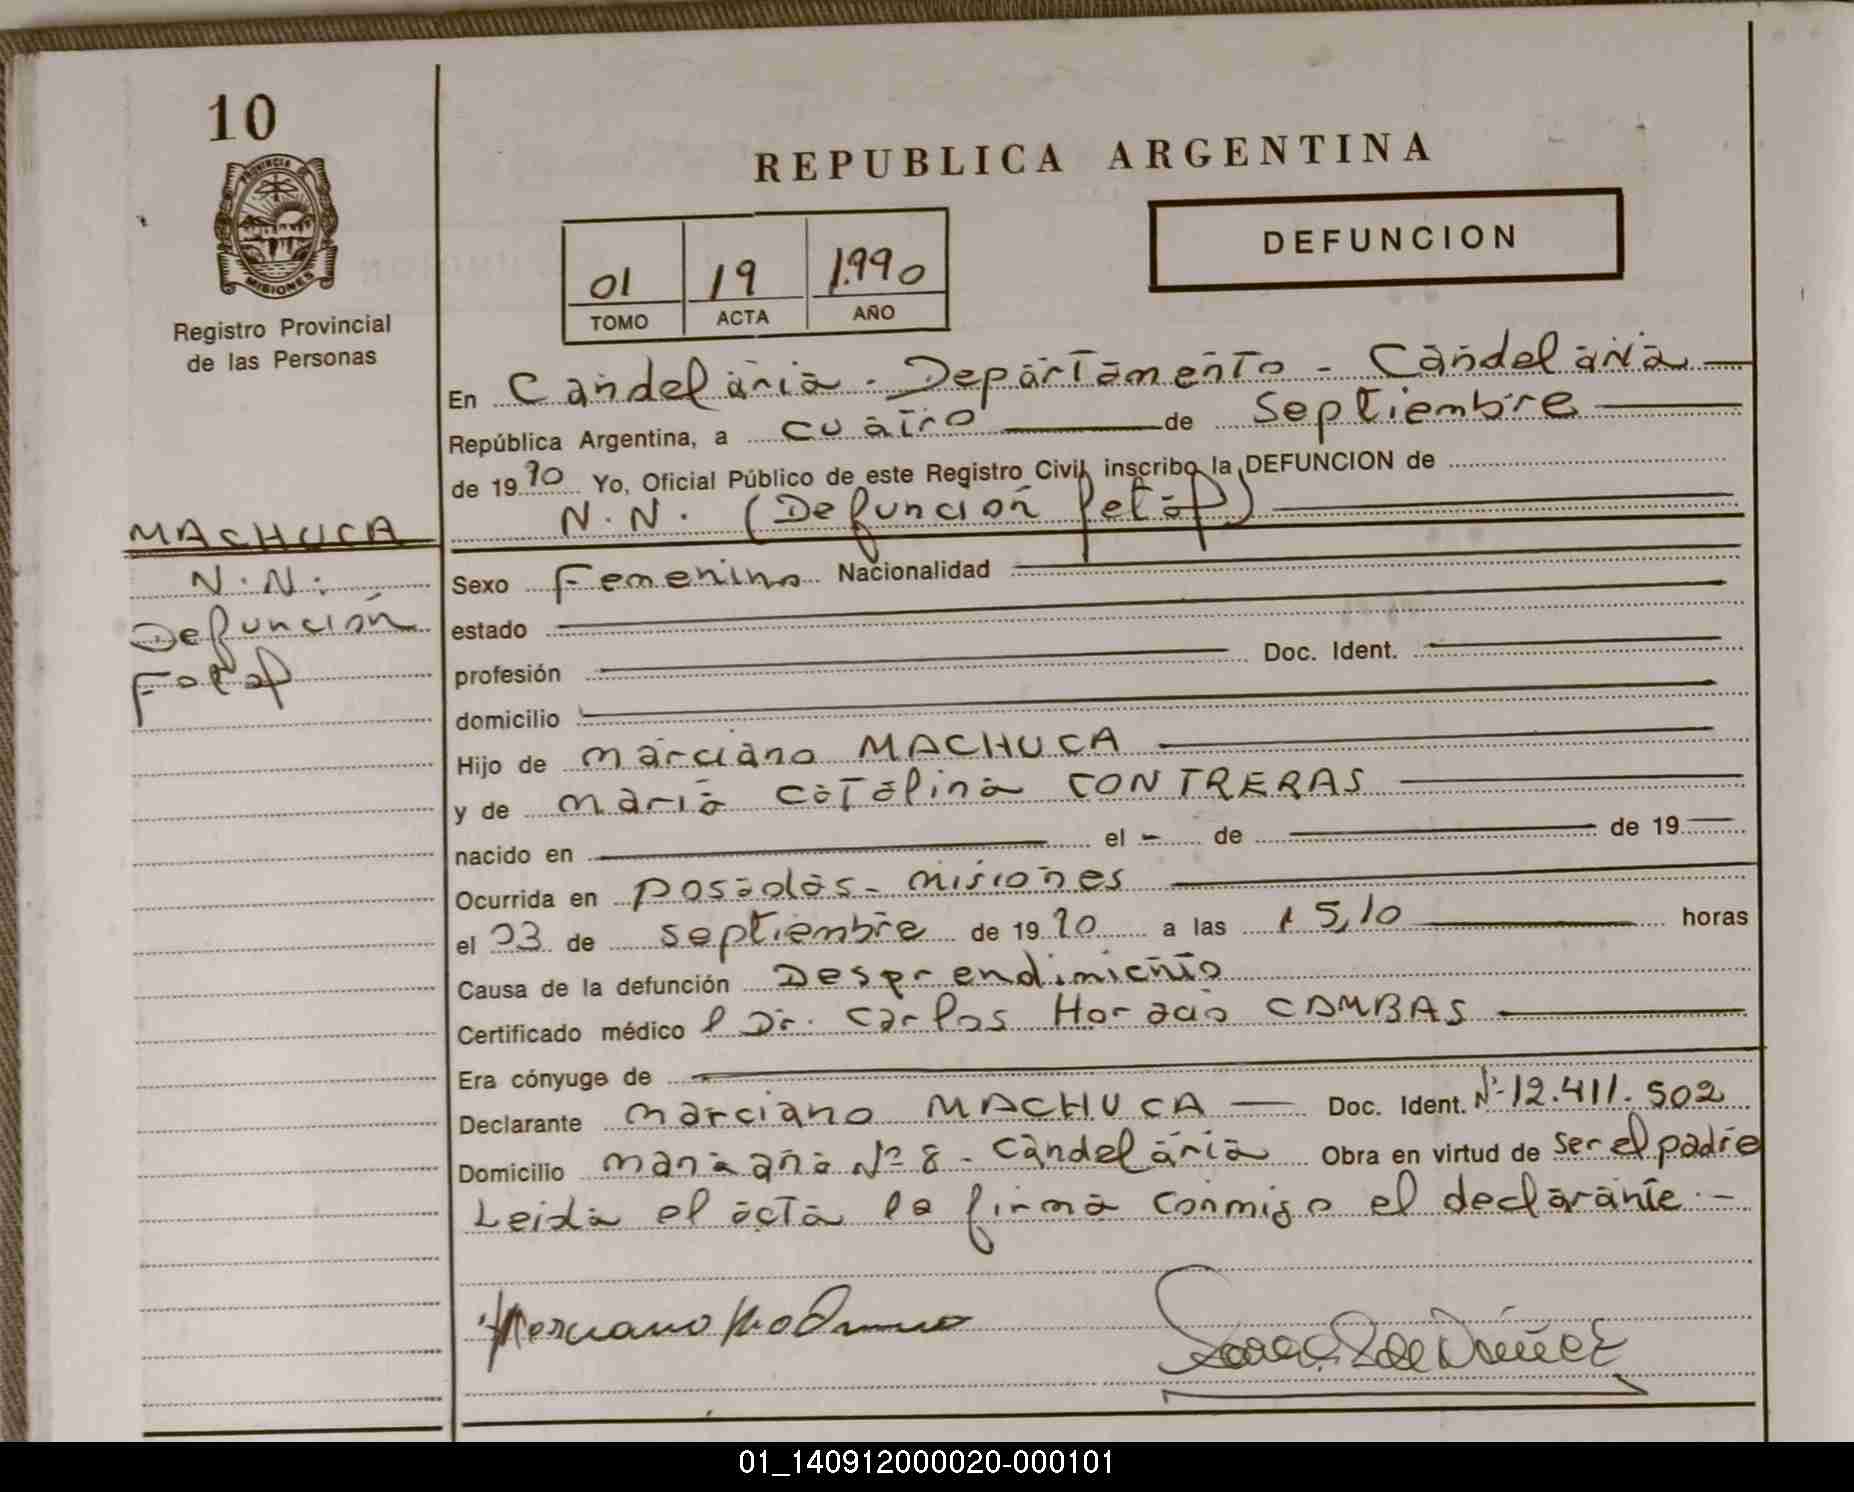 10
PROVINCIA DE
MISIONES
Registro Provincial
de las Personas
REPUBLICA ARGENTINA
01 19 1.990
TOMO ACTA AÑO
DEFUNCION
En Candelaria - Departamento - Candelaria
República Argentina, a cuatro de Septiembre
de 1990 Yo, Oficial Público de este Registro Civil, inscribo la DEFUNCION de
N.N. (Defunción fetal)
MACHUCA
N.N.
Defunción
Fetal
Sexo Femenino Nacionalidad
estado
profesión Doc. Ident.
domicilio
Hijo de Marciano MACHUCA
y de María Catalina CONTRERAS
nacido en el - de de 19
Ocurrida en Posadas - Misiones
el 03 de septiembre de 1990 a las 15,10 horas
Causa de la defunción Desprendimiento
Certificado médico Dr. Carlos Horacio CAMBAS
Era cónyuge de
Declarante Marciano MACHUCA Doc. Ident. Nº 12.411.502
Domicilio Nº 8 - Candelaria Obra en virtud de ser el padre
Leida el acta la firma conmigo el declarante.-
01_140912000020-000101